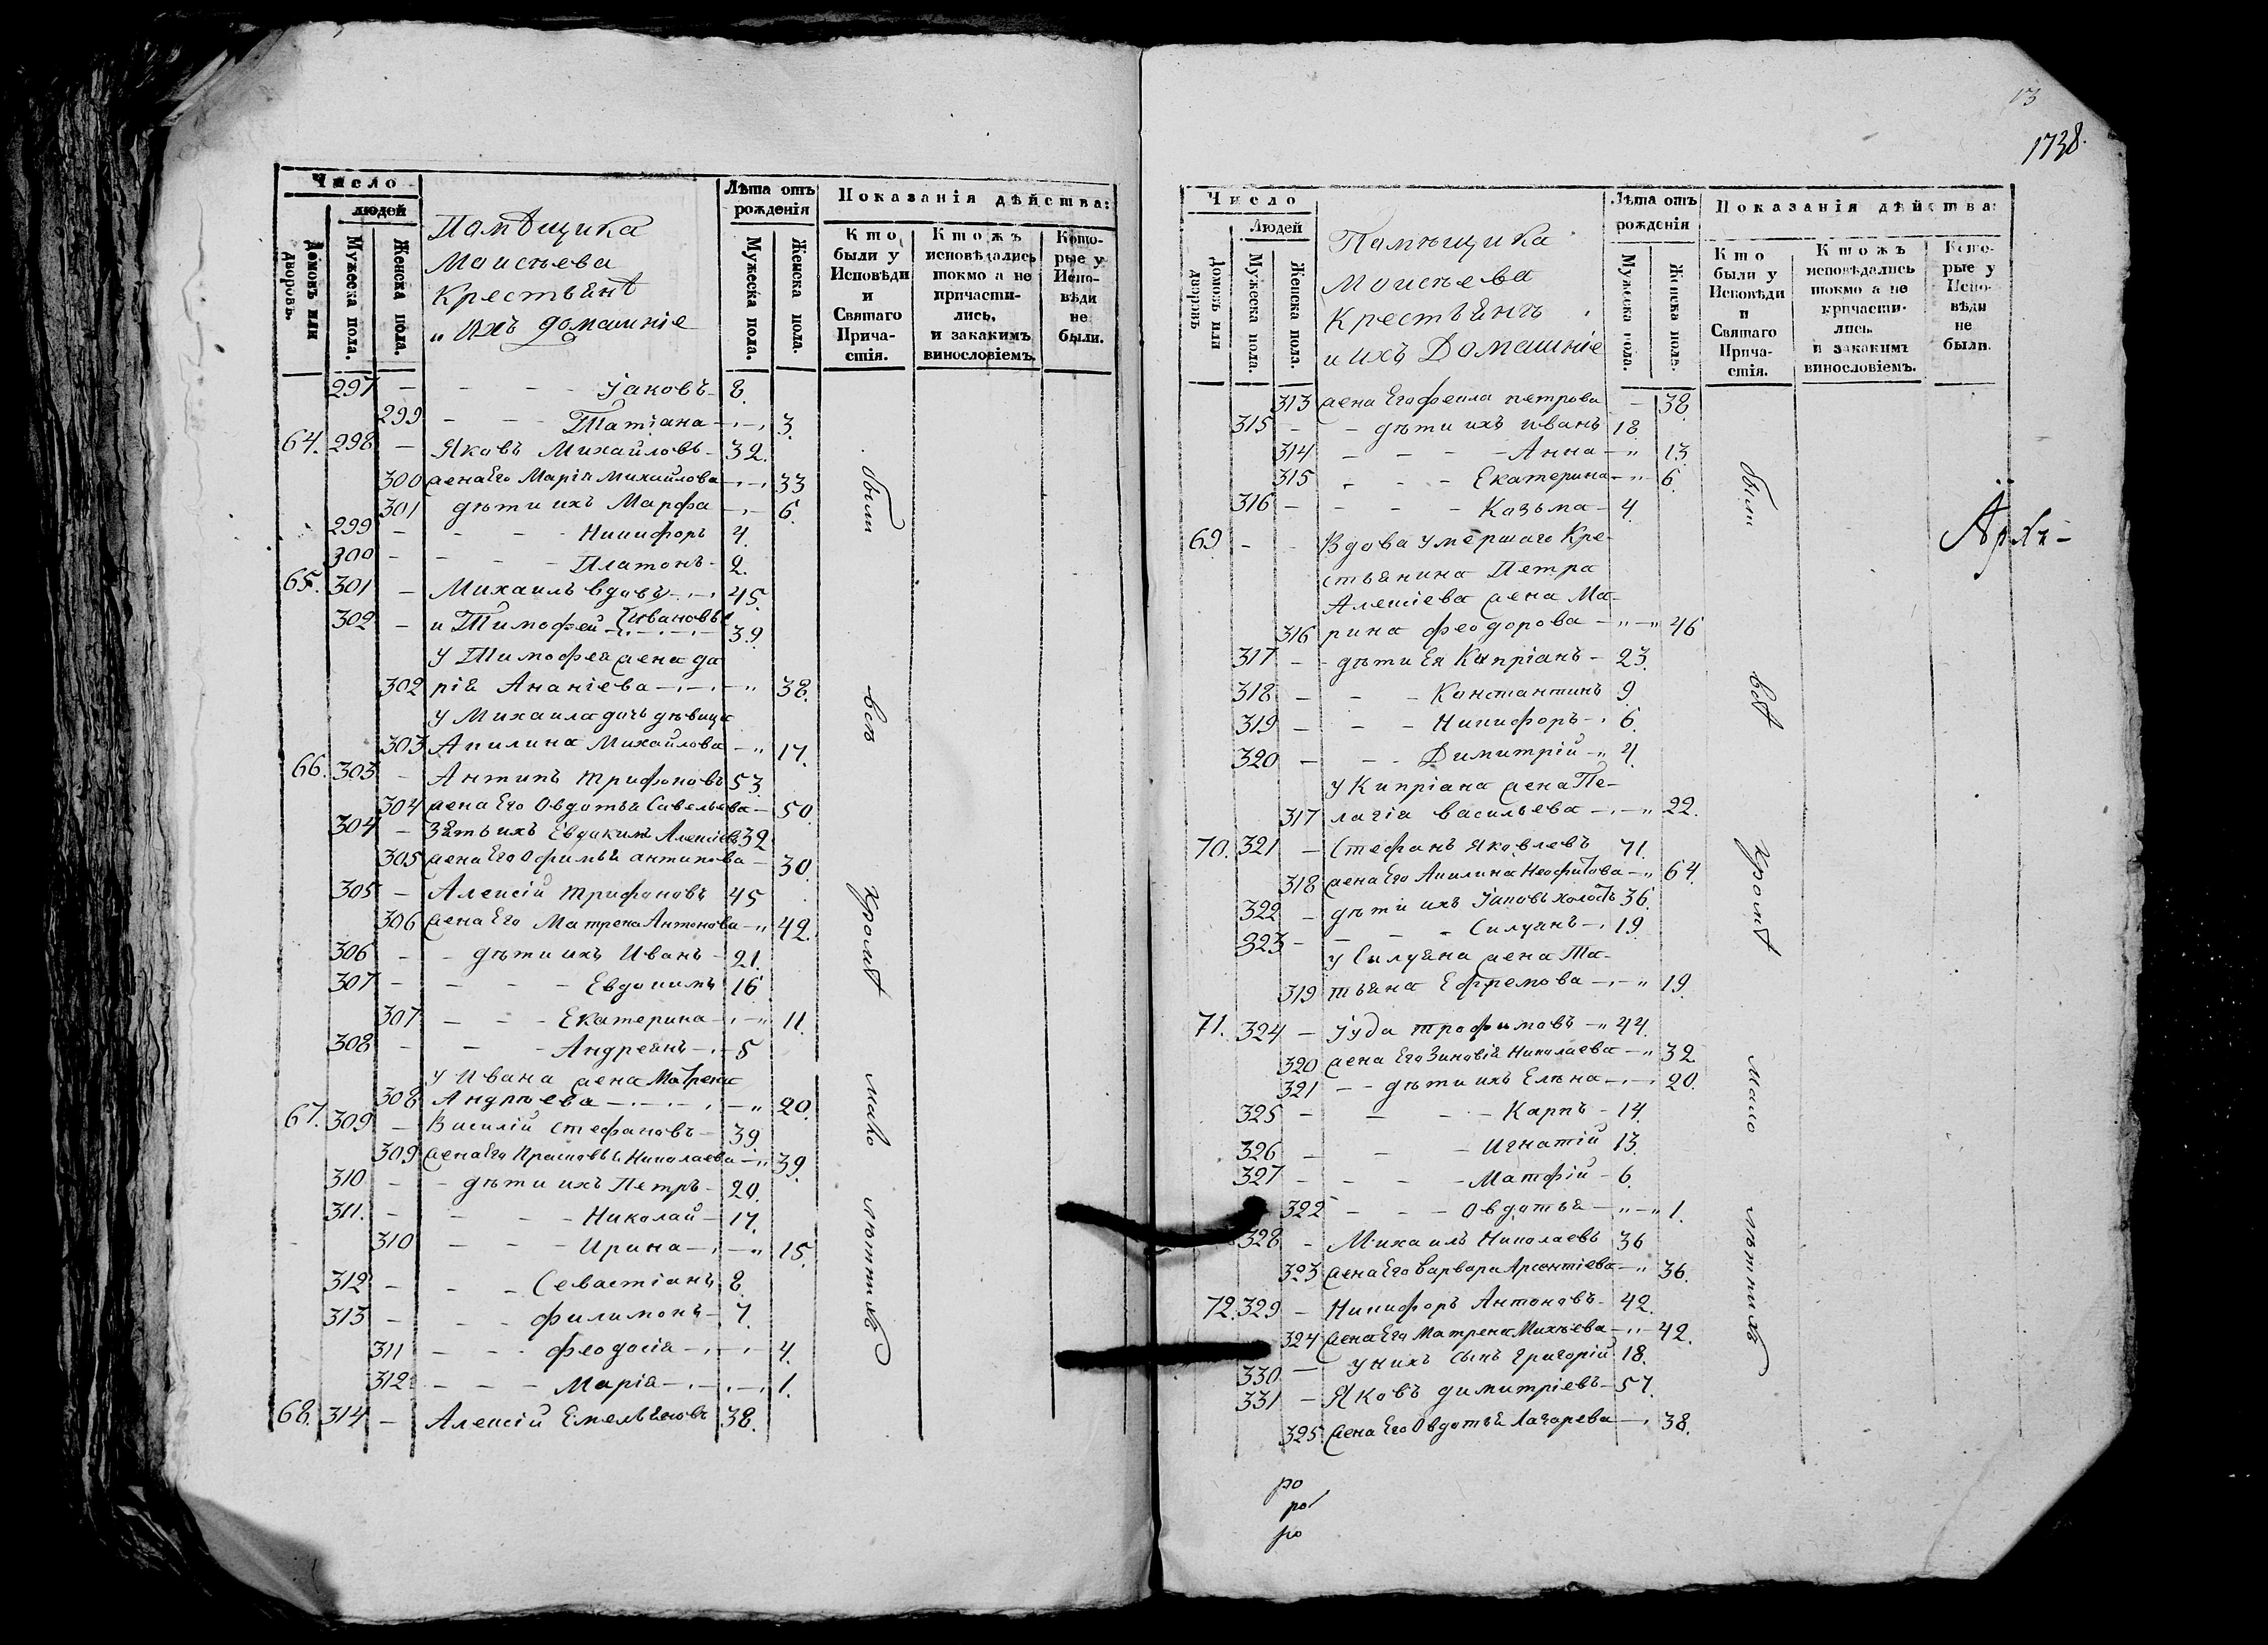 13
1738.
Число
людей
Домовъ или дворовъ.
Мужеска пола.
Женска пола.
Помѣщика
Моисѣева
Крестьянѣ
и ихъ домашніе
Лѣта отъ рожденія
Мужеска пола.
Женска пола.
Показанія дѣйства:
Кто были у Исповѣди и Святаго Причастія.
Ктожъ исповѣдались токмо а не причастились, и закакимъ винословіемъ.
Которые у Исповѣди не были.
297 – – – – Іаковъ – 8.
299 – – – Татіана – 3.
64. 298 – Яковъ Михайловъ – 32.
300 жена Его Марія Михайлова – 33
301 дѣти ихъ Марфа – 6.
299 – – – Никифоръ 4.
300 – – – Платонъ – 2.
65. 301 – Михаилъ вдовъ – 45.
302 – и Тимофей Ивановы 39.
у Тимофея жена да
302 рія Ананіева – 38.
у Михаила дочь дѣвица
303 Акилина Михайлова – 17.
66. 303 – Антипъ Трифоновъ 53.
304 жена Его Овдотья Савельева – 50.
304 – Зять ихъ Евдокимъ Алексіевъ 32
305 жена Его Офимья антипова – 30.
305 – Алексій Трифоновъ 45
306 жена Его Матрена Антонова – 42.
306 – – дѣти ихъ Иванъ – 21.
307 – – – Евдокимъ 16
307 – – – Екатерина – 11.
308 – – – Андреянъ – 5
у Ивана жена Матрена
308 Андрѣева – 20.
67. 309 – Василій Стефановъ – 39
309 жена Его Прасковья Николаева – 39.
310 – – дѣти ихъ Петръ – 20.
311. – – – Николай – 17.
310 – – – Ирина – 15.
312 – – – Севастіанъ 8.
313 – – – филимонъ – 7.
311 – – – феодосія – 4.
312 – – – Марія – 1.
68. 314 – Алексій Емельяновъ 38.
были всѣ кромѣ мало лѣтнихъ
Число
Людей
Домовъ или дворовъ
Мужеска пола.
Женска пола.
Помѣщика
Моисѣева
Крестьянъ
и ихъ Домашніе
Лѣта отъ рожденія
Мужеска пола.
Женска пола.
Показанія дѣйства:
Кто были у Исповѣди и Святаго Причастія.
Ктожъ исповѣдались токмо а не причастились. и закакимъ винословіемъ.
Которые у Исповѣди не были.
313 жена Его феkла петрова – 38.
315 – – дѣти ихъ иванъ 18.
314 – – – – Анна – 13.
315 – – – Екатерина – 6.
316 – – – – Козьма – 4.
69. – – Вдова умершаго Кре-
стьянина Петра
Алексіева жена Ма-
316 рина феодорова – 46
317 – – дѣти Ея Кипріанъ – 23.
318 – – – Константинъ 9.
319 – – – Никифоръ – 6.
320 – – – Димитрій – 4.
у Кипріана жена Пе-
317 лагія васильева – 22.
70. 321 – Стефанъ Яковлевъ 71.
318 жена Его Акилина Неофитова – 64.
322 – дѣти ихъ Іаковъ холостъ 36.
323 – – – Силуянъ – 19.
у Силуяна жена Та-
319 тьяна Ефремова – 19.
71. 324 – іуда трофимовъ – 44.
320 жена Его Зиновія Николаева – 32.
321 – – дѣти ихъ Елѣна – 20.
325 – – – – Карпъ – 14.
326 – – – Игнатій 13.
327 – – – – Матфій – 6.
322 – – – Овдотья – 1.
328 – Михаилъ Николаевъ 36
323 жена Его Варвара Арсентіева – 36.
72. 329 – Никифоръ Антоновъ – 42.
324 жена Его Матрена Михѣева – 42.
330 – у нихъ сынъ Григорій 18.
331 – Яковъ димитріевъ – 57.
325. жена Его Овдотья Лазарева – 38.
были всѣ кромѣ мало лѣтнихъ
ро
ро
ро